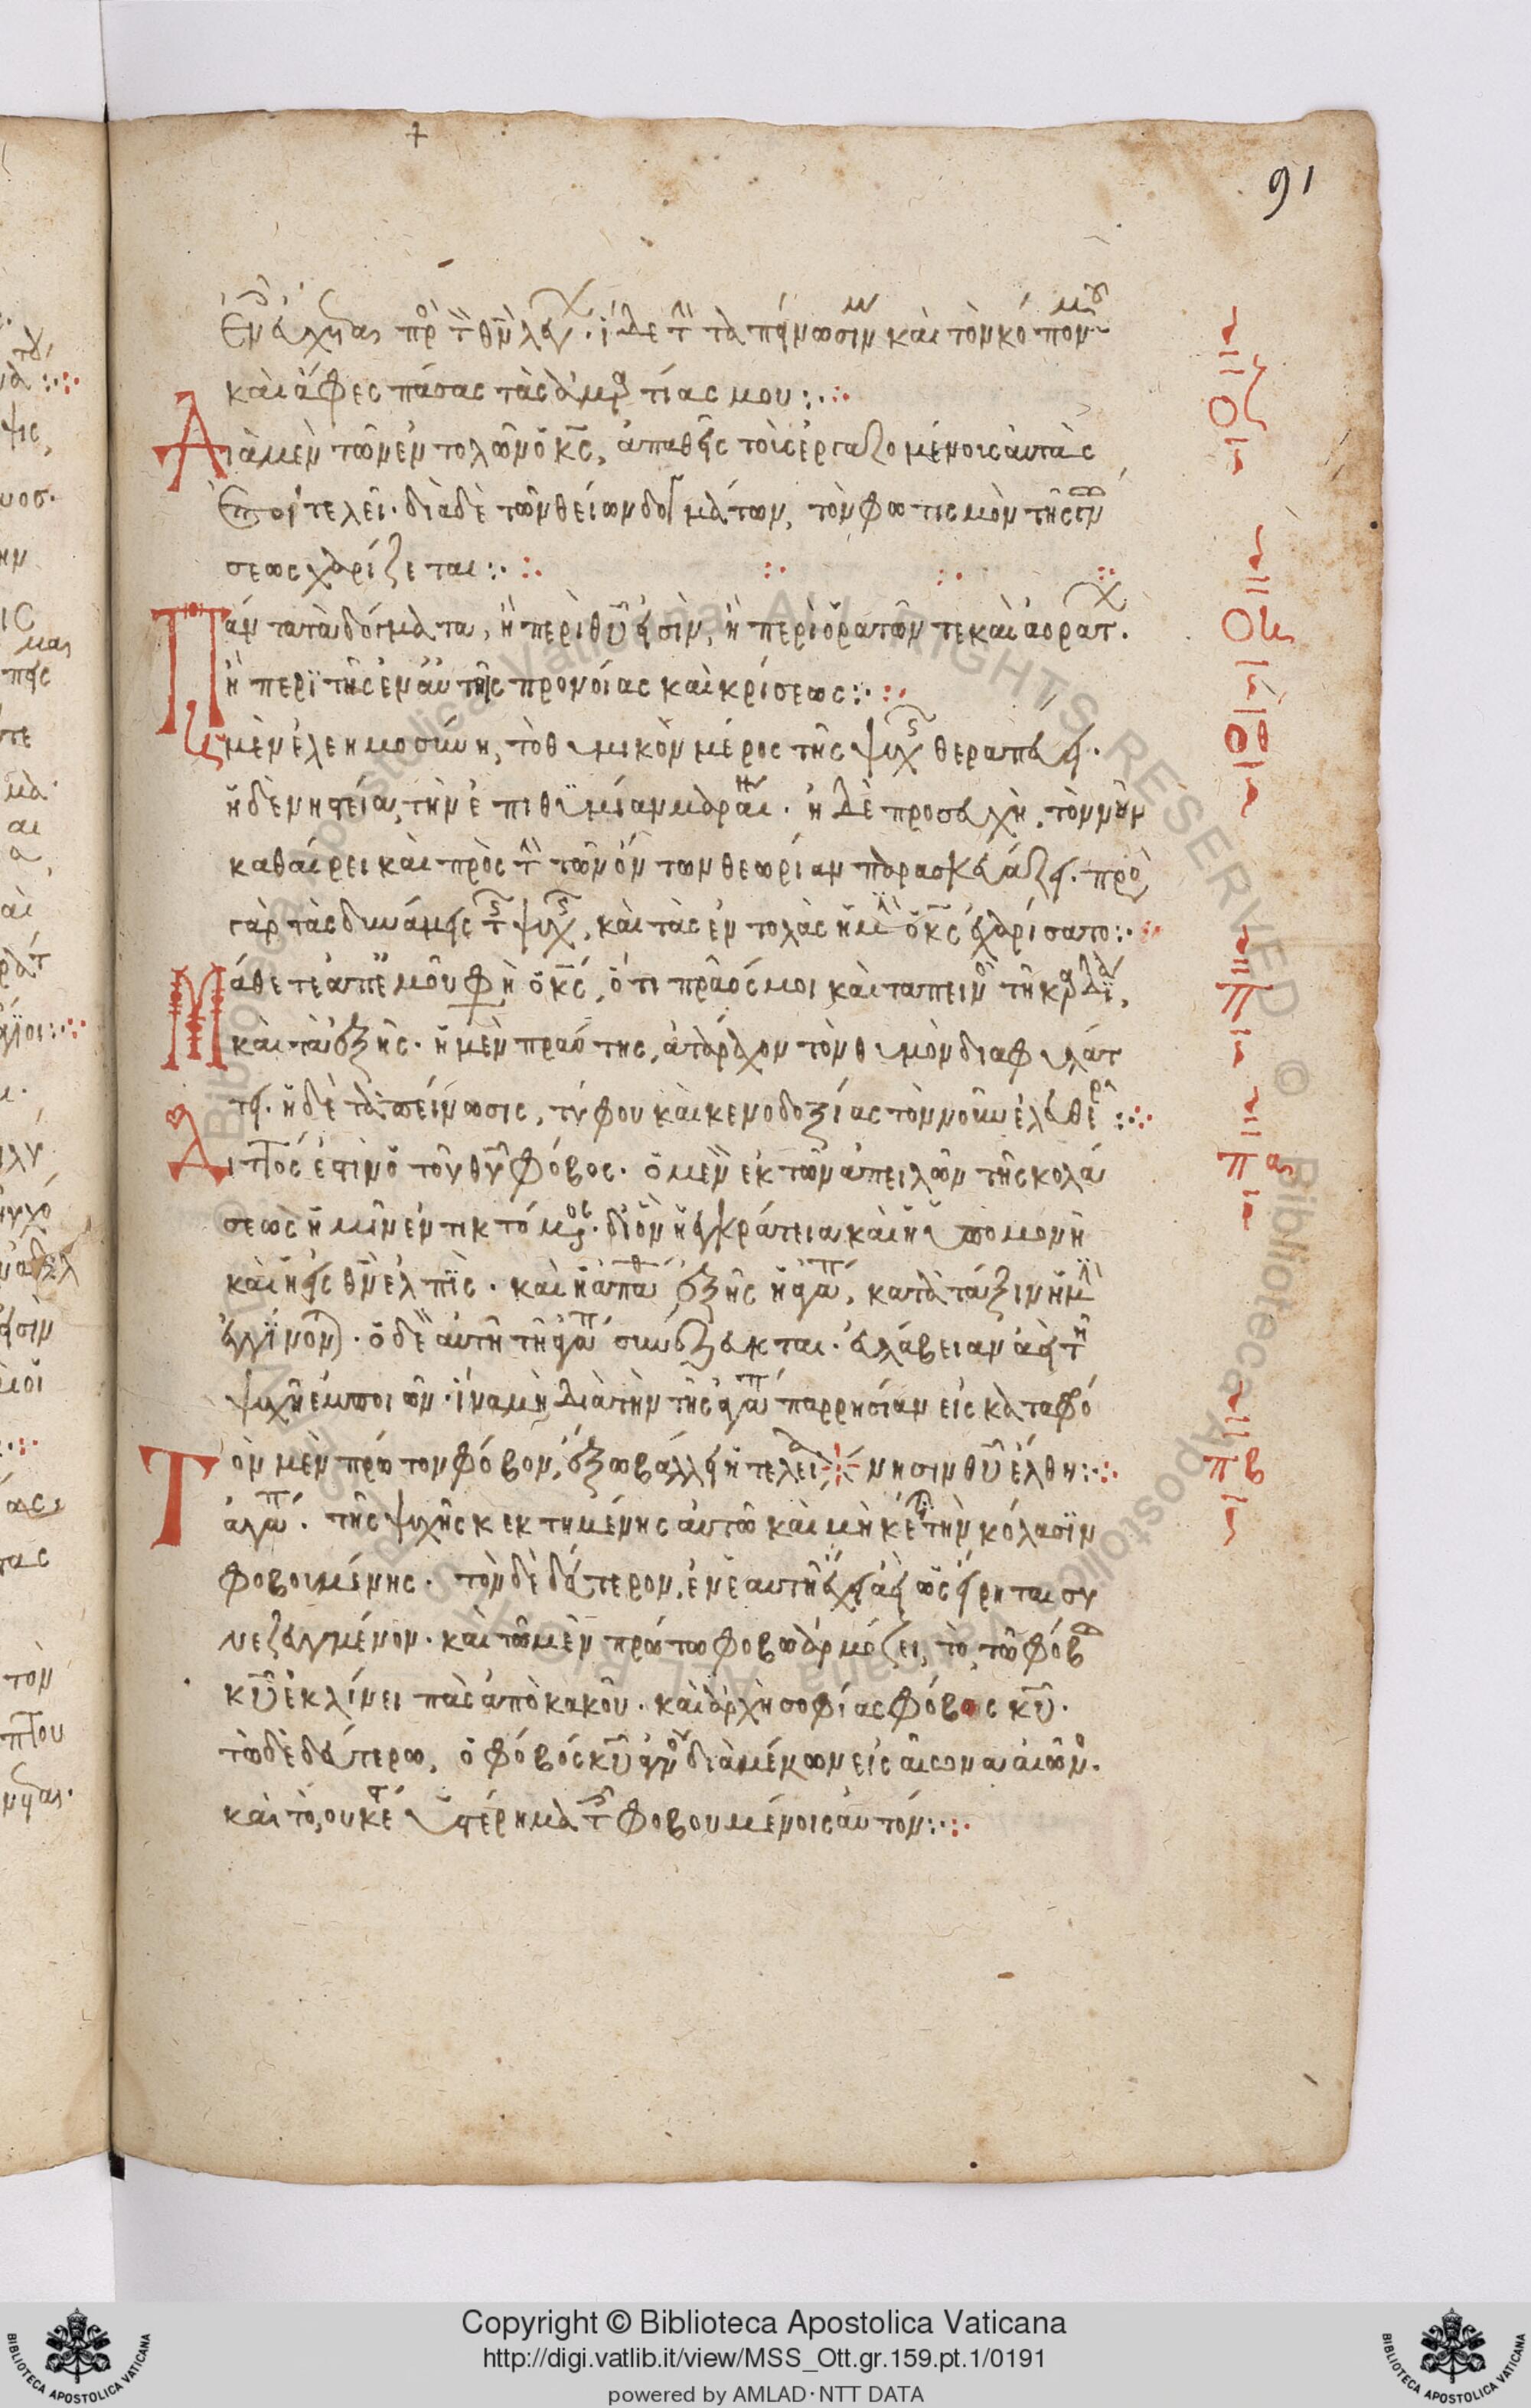 91
Εὐεύχηται πρὸς τὸν θν λέγων· ἴδε τὴν ταπείνωσίν μου καὶ τὸν κόπον μου
καὶ ἄφες πάσας τὰς ἁμαρτίας μου:·
Διὰ μὲν τῶν ἐντολῶν ὁ κς, ἀπαθεῖς τοὺς ἐργαζομένους αὐτὰς
ἀποτελεῖ· διὰ δὲ τῶν θείων δογμάτων, τὸν φωτισμὸν τῆς γνώ
σεως χαρίζεται:·
Πάντα τὰ δόγματα, ἢ περὶ θυ εἰσὶν, ἢ περὶ ὁρατῶν τε καὶ ἀοράτων·
ἢ περὶ τῆς ἐν αὐτοῖς προνοίας καὶ κρίσεως:·
Ἡ μὲν ἐλεημοσύνη, τὸ θυμικὸν μέρος τῆς ψυχῆς θεραπεύει·
ἡ δὲ νηστεία, τὴν ἐπιθυμίαν μαραίνει· ἡ δὲ προσευχὴ, τὸν νοῦν
καθαίρει καὶ πρὸς τὴν τῶν ὄντων θεωρίαν παρασκευάζει· πρὸς
γὰρ τὰς δυνάμεις τῆς ψυχῆς, καὶ τὰς ἐντολὰς ἡμῖν ὁ κς ἐχαρίσατο:·
Μάθετε ἀπ' ἐμοῦ φησὶν ὁ κς, ὅτι πρᾶός εἰμι καὶ ταπεινὸς τῇ καρδίᾳ,
καὶ τὰ ἑξῆς· ἡ μὲν πραότης, ἀτάραχον τὸν θυμὸν διαφυλάτ
τει· ἡ δὲ ταπείνωσις, τύφου καὶ κενοδοξίας τὸν νοῦν ἐλευθεροῖ:·
Διττός ἐστιν ὁ τοῦ θυ φόβος· ὁ μὲν ἐκ τῶν ἀπειλῶν τῆς κολά
σεως ἡμῖν ἐντικτόμενος· δι' ὃν ἡ ἐγκράτεια καὶ ἡ ὑπομονὴ
καὶ ἡ εἰς θν ἐλπὶς· καὶ ἡ ἀπάθεια ἐξ ἧς ἡ ἀγάπη, κατὰ τάξιν ἡμῖν
ἐγγίνονται· ὁ δὲ αὐτῇ τῇ ἀγάπῃ συνέζευκται· εὐλάβειαν ἀεὶ τῇ
ψυχῇ ἐμποιῶν· ἵνα μὴ διὰ τὴν τῆς ἀγάπης παρρησίαν εἰς καταφρό
νησιν θυ ἔλθῃ:·
Τὸν μὲν πρῶτον φόβον, ἔξω βάλλει ἡ τελεία
ἀγάπη· τῆς ψυχῆς κεκτημένης αὐτὸ καὶ μηκέτι τὴν κόλασιν
φοβουμένης· τὸν δὲ δεύτερον, ἐν ἑαυτῇ ἔχει ἀεὶ ὡς εἴρηται συ
νεζευγμένον· καὶ τῷ μὲν πρώτῳ φόβῳ ἁρμόζει, τὸ, τῷ φόβῳ
κυ ἐκκλίνει πᾶς ἀπὸ κακοῦ· καὶ ἀρχὴ σοφίας φόβος κυ·
τῷ δὲ δευτέρῳ, ὁ φόβος κυ ἁγνὸς διαμένων εἰς αἰῶνα αἰῶνος·
καὶ τὸ, οὐκ ἔστιν ὑστέρημα τοῖς φοβουμένοις αὐτόν:·
οζ
οη
οθ
π
πα
πβ
Copyright © Biblioteca Apostolica Vaticana
http://digi.vatlib.it/view/MSS_Ott.gr.159.pt.1/0191
powered by AMLAD·NTT DATA